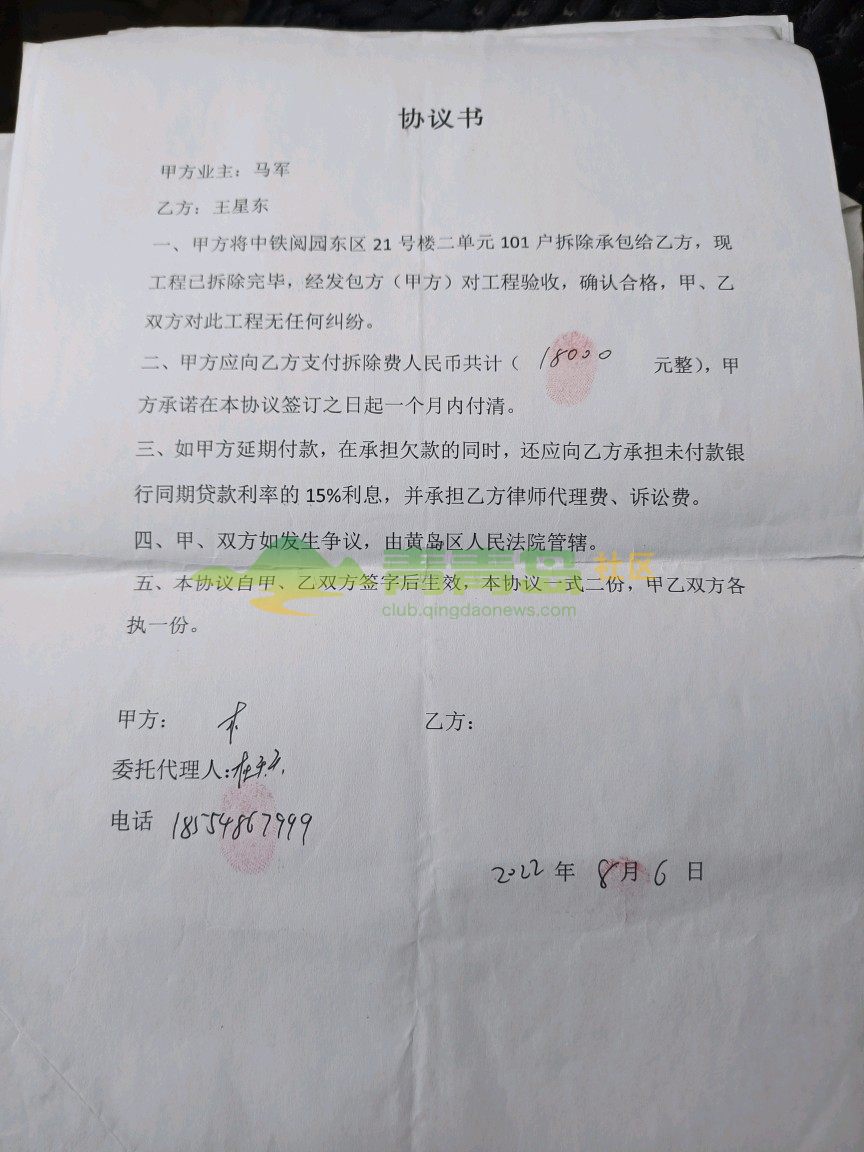 协议书
甲方业主：马军
乙方：王星东
一、甲方将中铁阅园东区 21 号楼二单元 101 户拆除承包给乙方，现
工程已拆除完毕，经发包方（甲方）对工程验收，确认合格，甲、乙
双方对此工程无任何纠纷。
二、甲方应向乙方支付拆除费人民币共计（ 18000 元整），甲
方承诺在本协议签订之日起一个月内付清。
三、如甲方延期付款，在承担欠款的同时，还应向乙方承担未付款银
行同期贷款利率的 15%利息，并承担乙方律师代理费、诉讼费。
四、甲、双方如发生争议，由黄岛区人民法院管辖。
五、本协议自甲、乙双方签字后生效，本协议一式二份，甲乙双方各
执一份。
青青岛社区
club.qingdaonews.com
甲方： 乙方：
委托代理人：
电话 18554867999
2022 年 8月 6 日